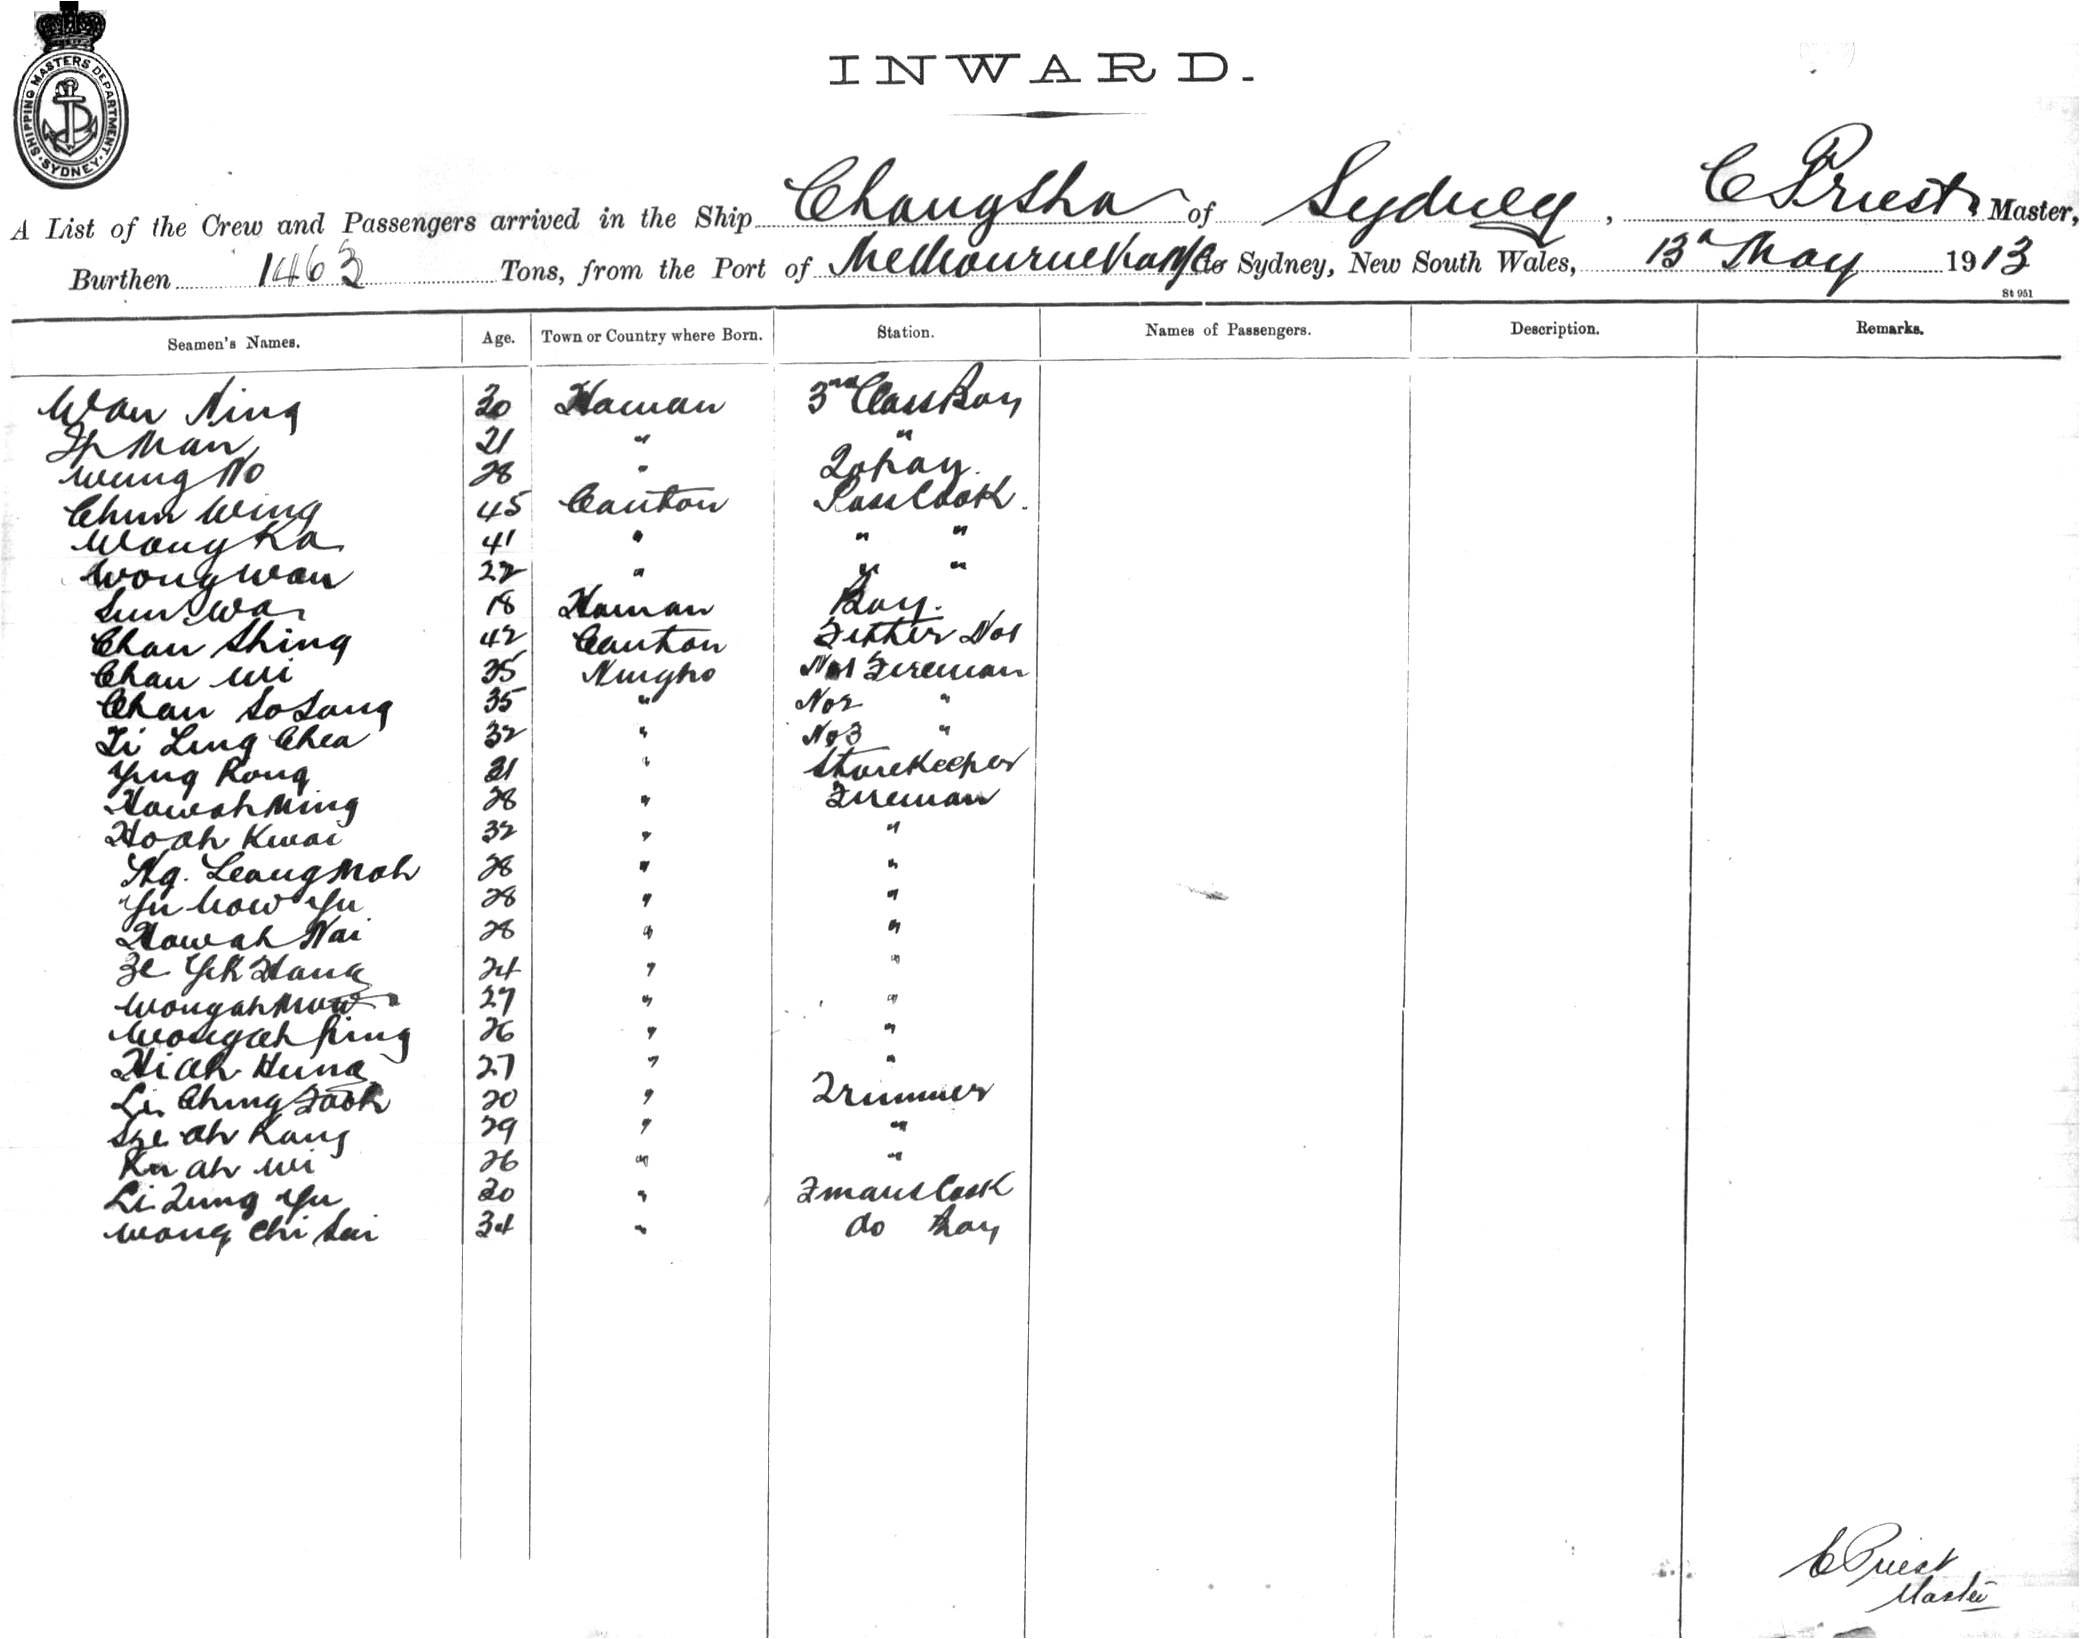 SHIPPING MASTERS DEPARTMENT. SYDNEY.
INWARD.
A List of the Crew and Passengers arrived in the Ship Changsha of Sydney, C Priest Master,
Burthen 1463 Tons, from the Port of Melbourne to Sydney, New South Wales, 13th May 1913
St 951
Seamen's Names. Age. Town or Country where Born. Station. Names of Passengers. Description. Remarks.
Wan Ning 30 Hainan 3rd Class Boy
Ip Man 21 " "
Wung No 28 "
Chun Wing 45 Canton Pass Cook.
Wong Ka 41 " " "
Wong Wan 22 " " "
Sun Wa 18 Hainan Boy.
Chan Shing 42 Canton Fitter No1
Chan Wi 35 Ningpo No1 Fireman
Chan So Sang 35 " No2 "
Li Ling Chea 32 " No3 "
Ying Kong 31 " Storekeeper
Howah Ming 28 " Fireman
Ho ah Kwai 32 " "
Ng. Leang Moh 28 " "
Yu How Yu 28 " "
Howah Nai 28 " "
Ze Yek Hang 24 " "
Wong ah Mow 27 " "
Wong ah Ping 26 " "
Hi ah Hung 27 " "
Li Ching Fook 20 " Trimmer
She ah Kang 29 " "
Ku ah Wi 26 " "
Li Zung Yu 30 " Fmans Cook
Wong Chi Sai 34 " do Boy
C Priest
Master